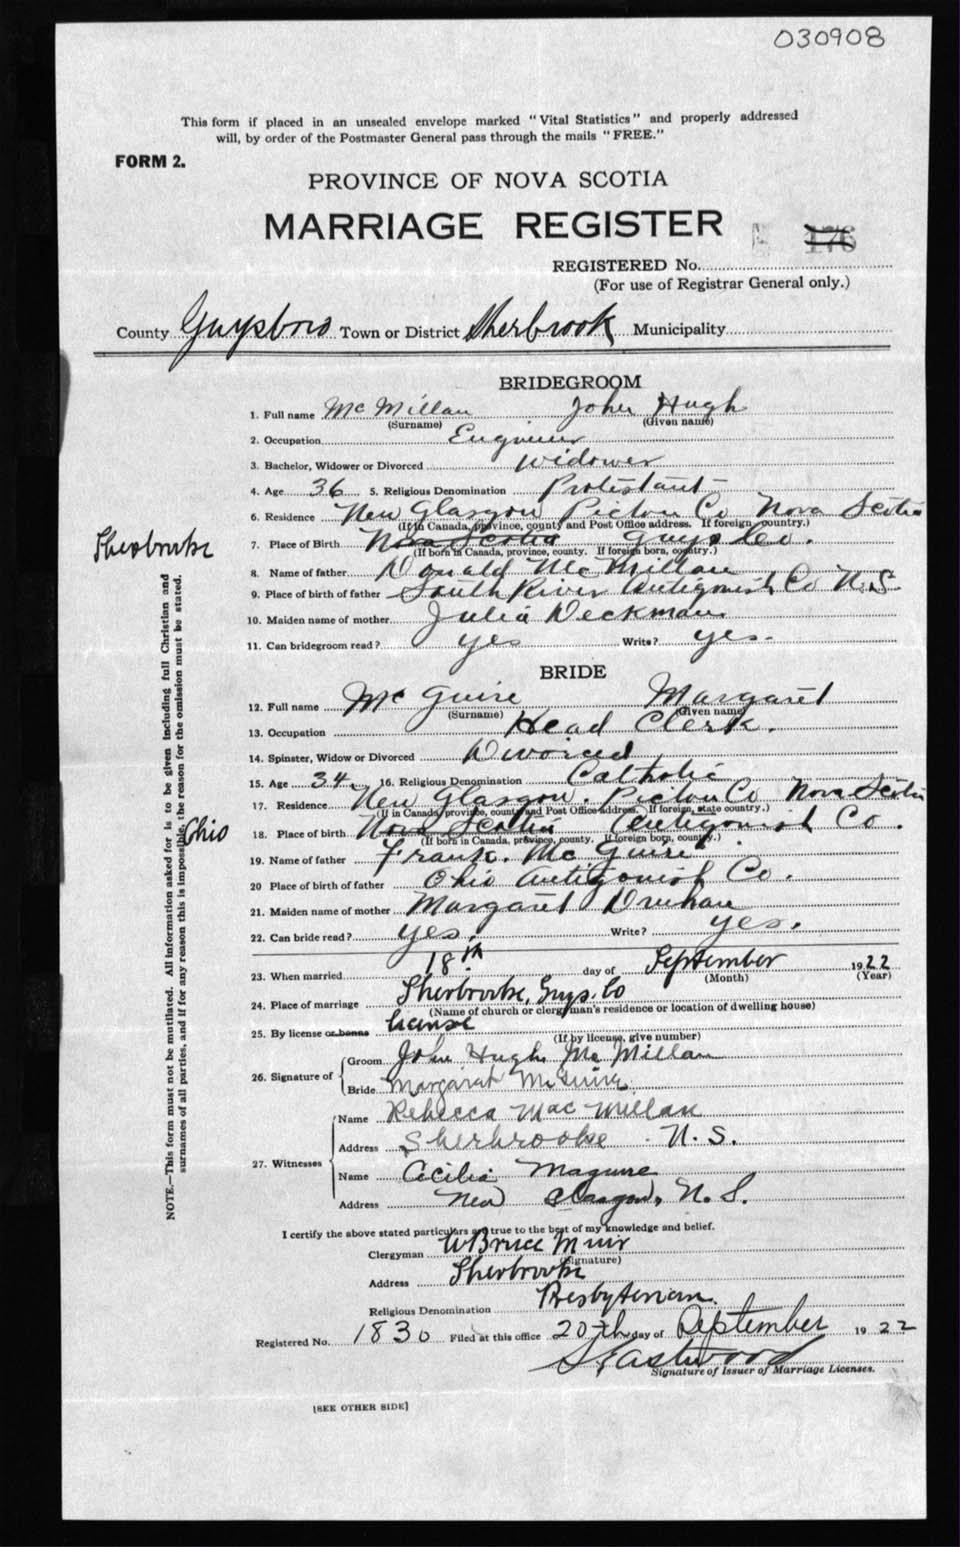 030908
This form if placed in an unsealed envelope marked "Vital Statistics" and properly addressed
will, by order of the Postmaster General pass through the mails "FREE."
FORM 2.
PROVINCE OF NOVA SCOTIA
MARRIAGE REGISTER
176
REGISTERED No.
(For use of Registrar General only.)
County Guysboro Town or District Sherbrook Municipality
BRIDEGROOM
1. Full name McMillan John Hugh
(Surname) (Given name)
2. Occupation Engineer
3. Bachelor, Widower or Divorced widower
4. Age 36 5. Religious Denomination Protestant
6. Residence New Glasgow Pictou Co Nova Scotia
(If in Canada, province, county and Post Office address. If foreign, country.)
Sherbrooke
7. Place of Birth Nova Scotia Guys Co.
(If born in Canada, province, county. If foreign born, country.)
8. Name of father Donald McMillan
9. Place of birth of father South River Antigonish Co N.S.
10. Maiden name of mother Julia Deckman
11. Can bridegroom read? yes Write? yes.
BRIDE
12. Full name McGuire Margaret
(Surname) (Given name)
13. Occupation Head Clerk.
14. Spinster, Widow or Divorced Divorced
15. Age 34 16. Religious Denomination Catholic
17. Residence New Glasgow. Pictou Co Nova Scotia
(If in Canada, province, county and Post Office address. If foreign, state country.)
Ohio
18. Place of birth Nova Scotia Antigonish Co.
(If born in Canada, province, county. If foreign born, country.)
19. Name of father Frank. McGuire
20 Place of birth of father Ohio Antigonish Co.
21. Maiden name of mother Margaret
22. Can bride read? yes. Write? yes.
23. When married 18th day of September 1922
(Month) (Year)
24. Place of marriage Sherbrooke, Guys. Co
(Name of church or clergyman's residence or location of dwelling house)
25. By license or banns license
(If by license, give number)
26. Signature of
Groom John Hugh McMillan
Bride Margaret McGuire
27. Witnesses
Name Rebecca MacMillan
Address Sherbrooke N.S.
Name Cecilia Maguire
Address New Glasgow, N.S.
I certify the above stated particulars are true to the best of my knowledge and belief.
Clergyman W Bruce Muir
(Signature)
Address Sherbrooke
Religious Denomination Presbyterian.
Registered No. 1830 Filed at this office 20th day of September 1922
S Eastwood
Signature of Issuer of Marriage Licenses.
[SEE OTHER SIDE]
NOTE.—This form must not be mutilated. All information asked for is to be given including full Christian and
surnames of all parties, and if for any reason this is impossible, the reason for the omission must be stated.